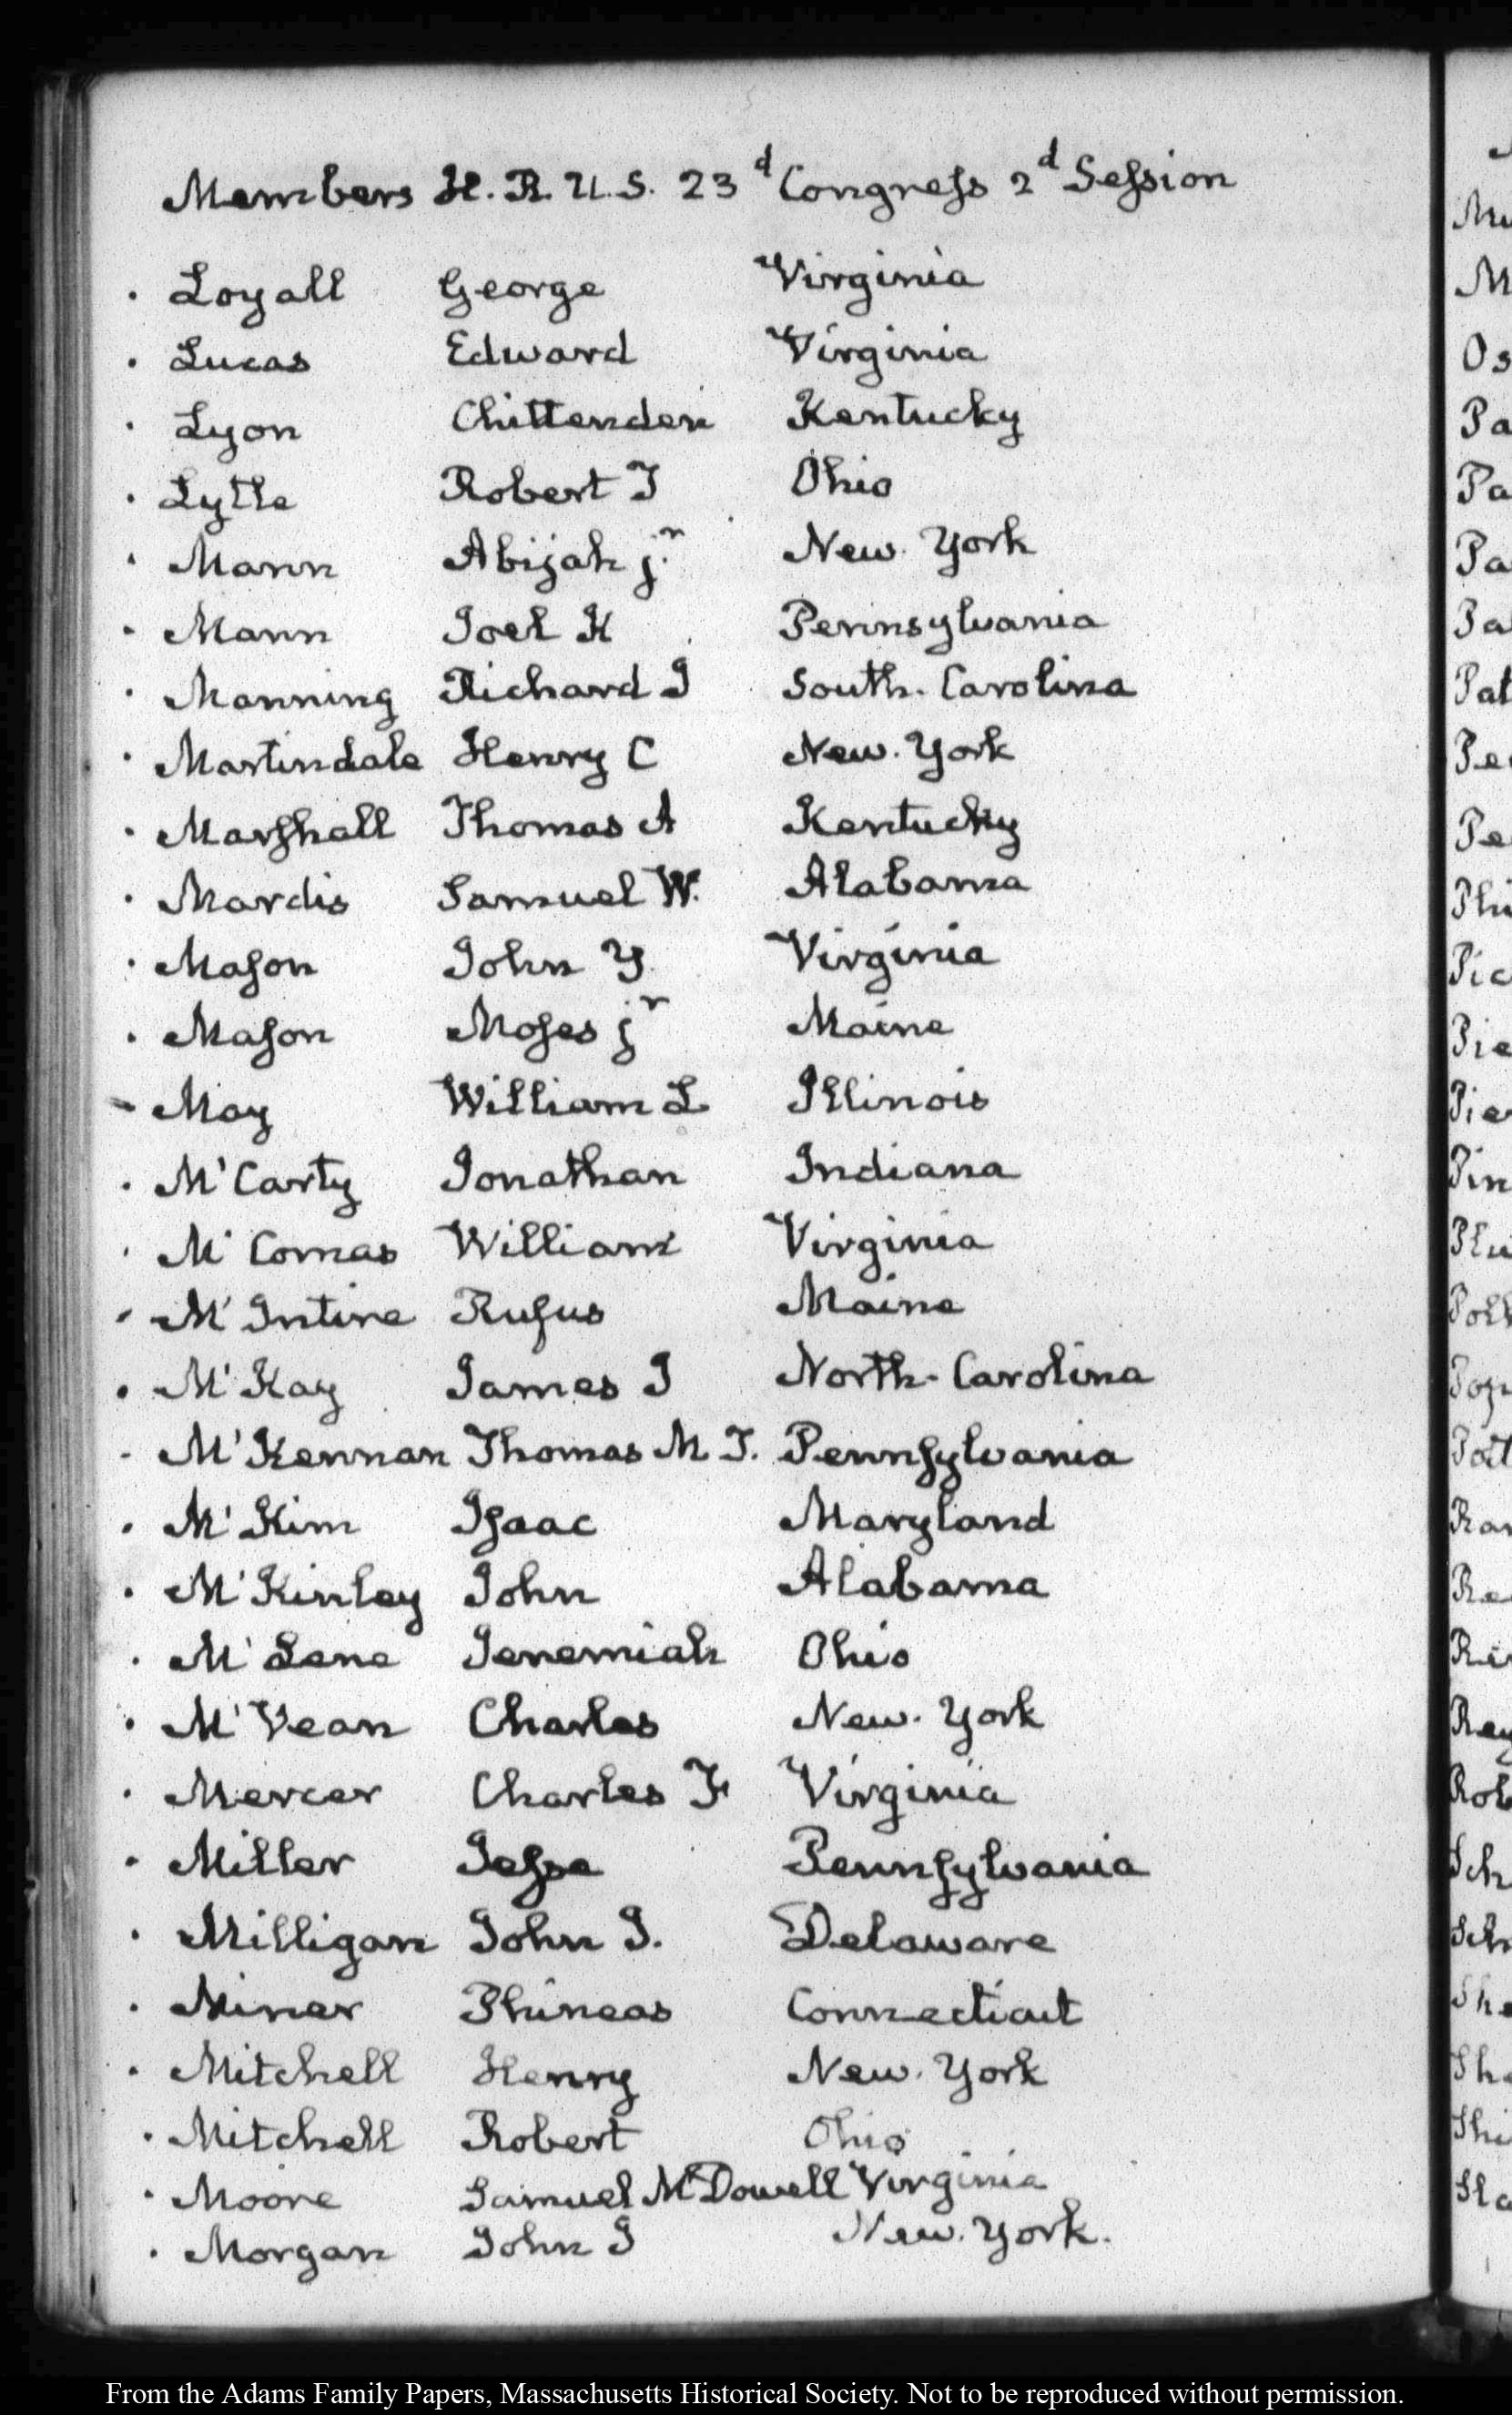 Members H. R. U.S. 23d Congress 2d Session
Loyall George Virginia
Lucas Edward Virginia
Lyon Chittenden Kentucky
Lytle Robert T Ohio
Mann Abijah jr. New York
Mann Joel K Pennsylvania
Manning Richard I South-Carolina
Martindale Henry C New-York
Marshall Thomas A Kentucky
Mardis Samuel W. Alabama
Mason John Y. Virginia
Mason Moses jr Maine
May William L Illinois
M'Carty Jonathan Indiana
M'Comas William Virginia
M'Intire Rufus Maine
M'Kay James I North-Carolina
M'Kennan Thomas M. T. Pennsylvania
M'Kim Isaac Maryland
M'Kinley John Alabama
M'Lene Jeremiah Ohio
M'Vean Charles New-York
Mercer Charles F Virginia
Miller Jesse Pennsylvania
Milligan John J. Delaware
Miner Phineas Connecticut
Mitchell Henry New-York
Mitchell Robert Ohio
Moore Samuel McDowell Virginia
Morgan John J New-York.
Os
Pa
Pa
Pa
Pa
Pat
From the Adams Family Papers, Massachusetts Historical Society. Not to be reproduced without permission.